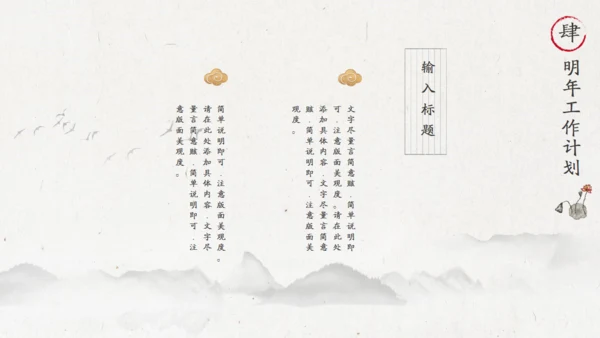 肆
明年工作计划
输入标题
文字尽量言简意赅.简单说明即
可.注意版面美观度。请在此处
添加具体内容.文字尽量言简意
赅.简单说明即可.注意版面美
观度。
简单说明即可.注意版面美观度。
请在此处添加具体内容.文字尽
量言简意赅.简单说明即可.注
意版面美观度。